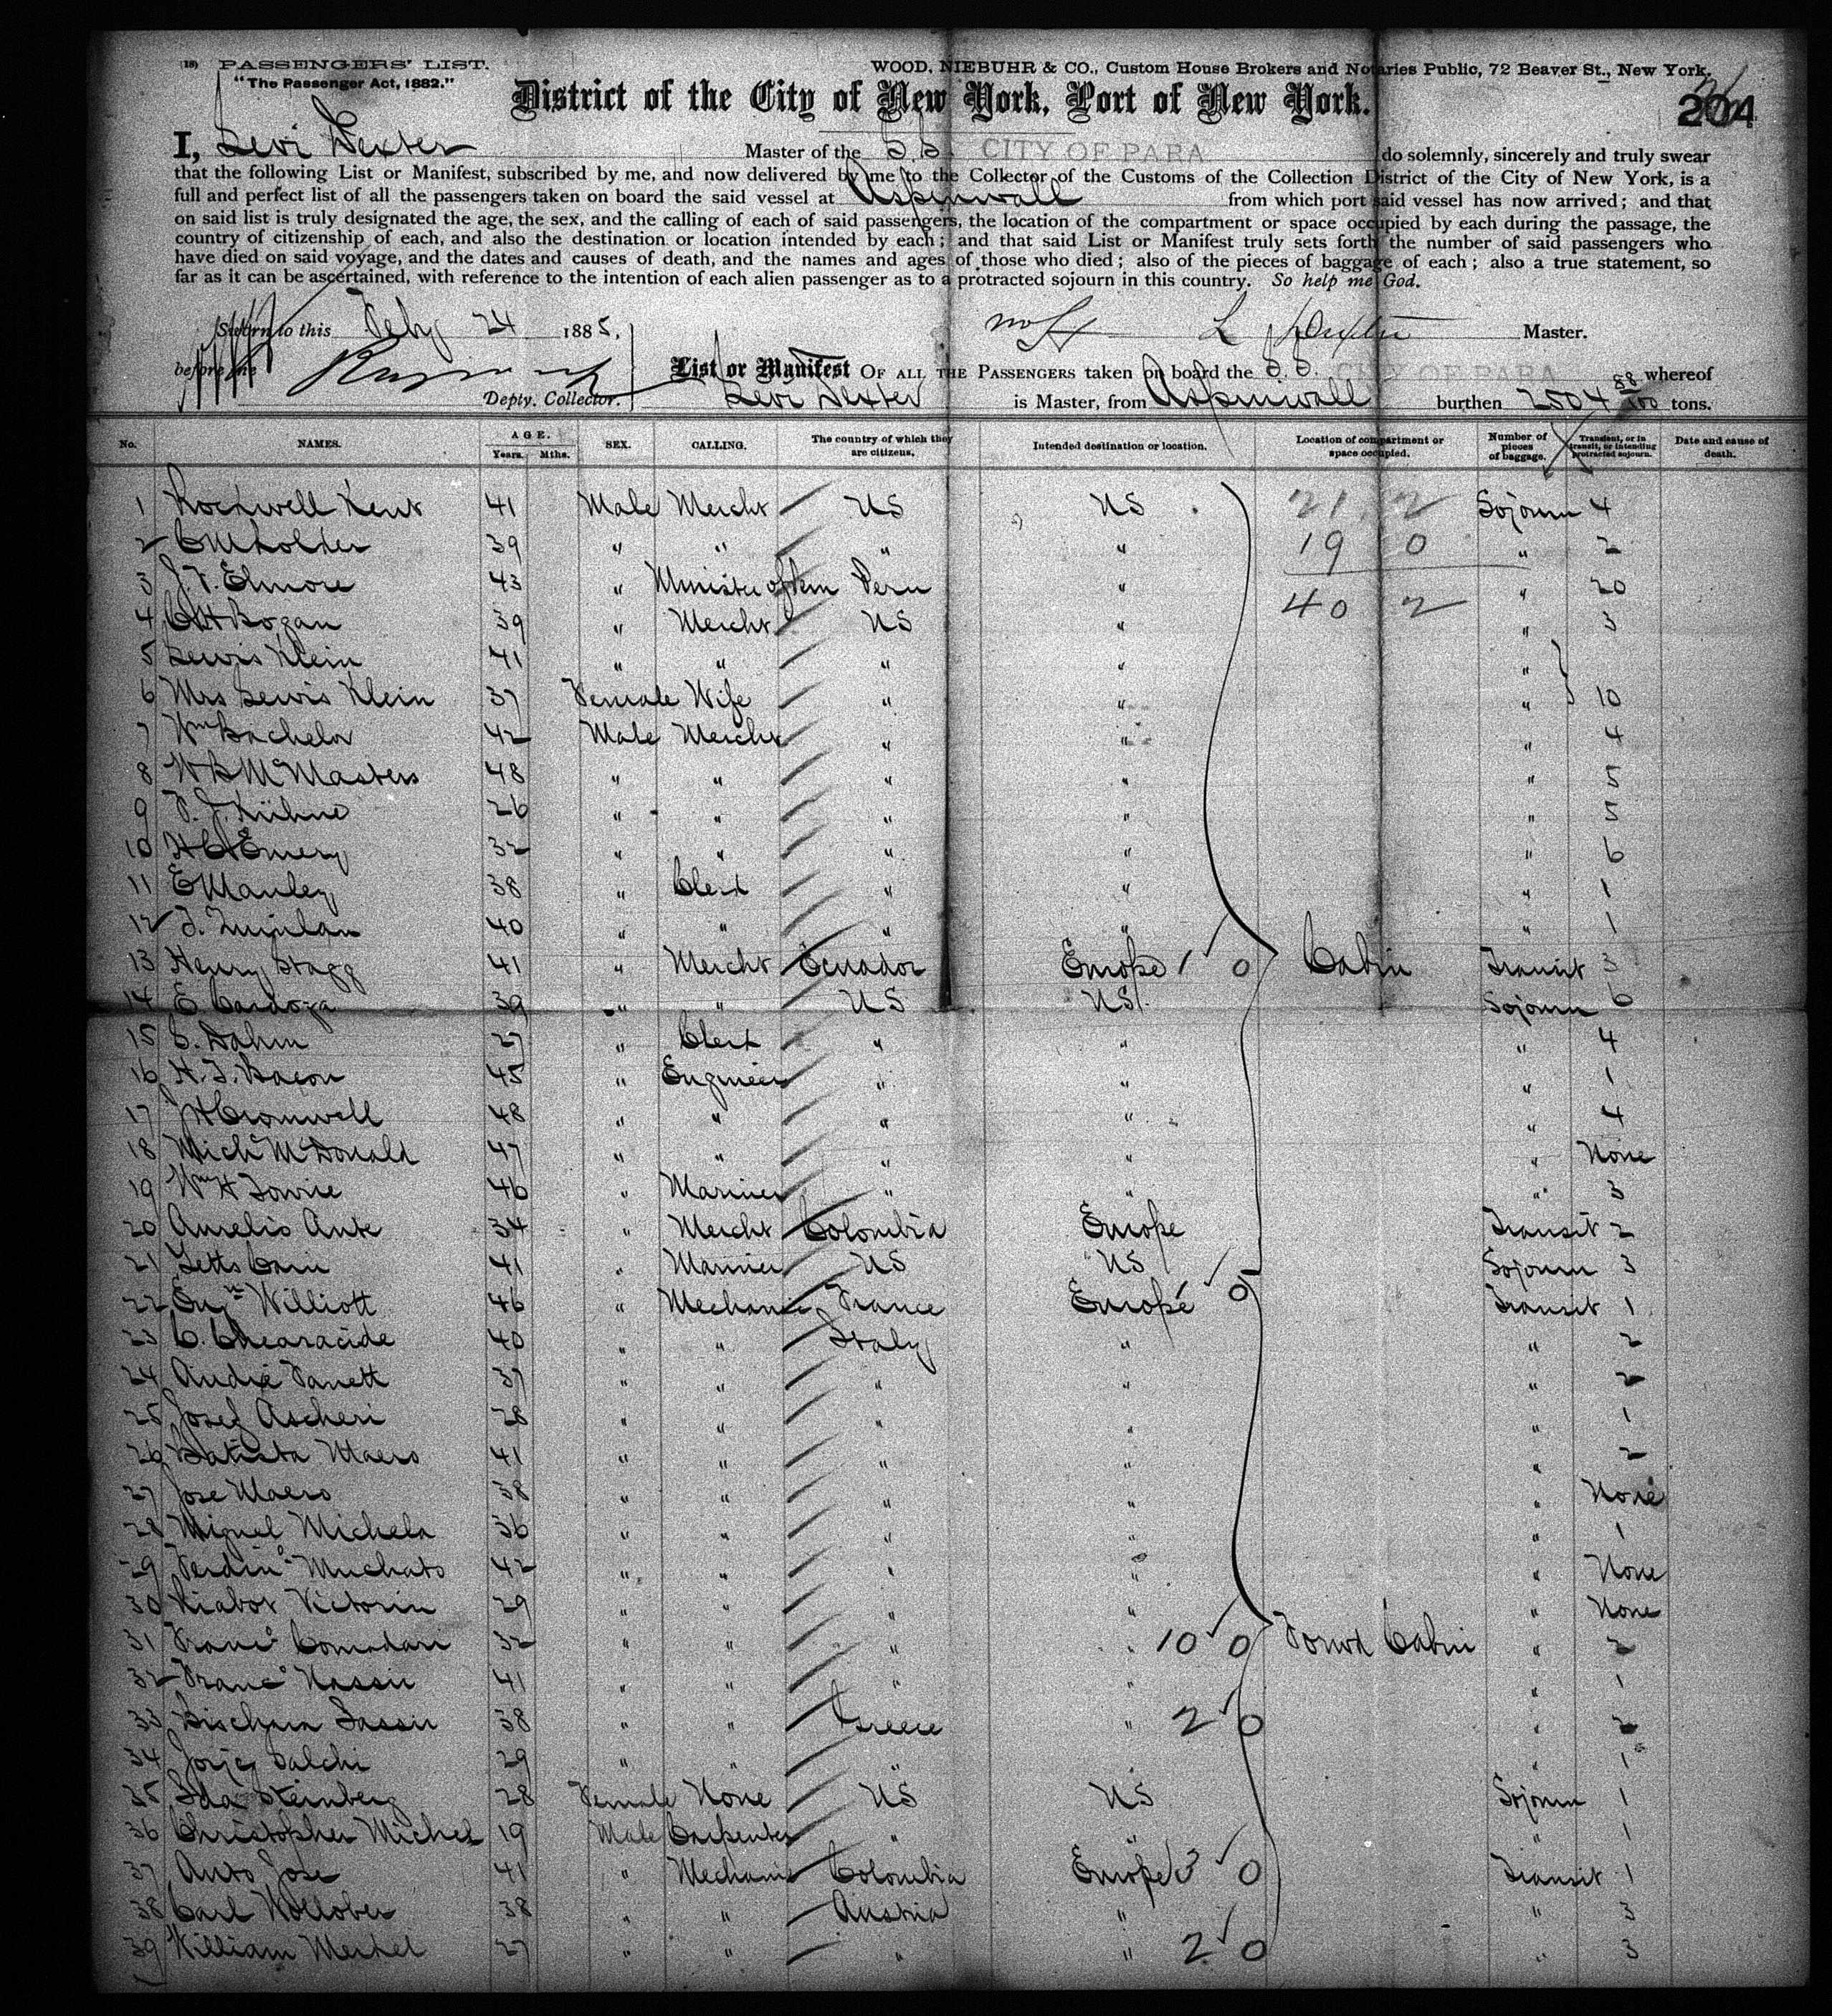 (18) PASSENGERS' LIST. WOOD, NIEBUHR & CO., Custom House Brokers and Notaries Public, 72 Beaver St., New York.
"The Passenger Act, 1882."
District of the City of New York, Port of New York. 204
I, Levi Dexter Master of the S.S. CITY OF PARA do solemnly, sincerely and truly swear
that the following List or Manifest, subscribed by me, and now delivered by me to the Collector of the Customs of the Collection District of the City of New York, is a
full and perfect list of all the passengers taken on board the said vessel at Aspinwall from which port said vessel has now arrived; and that
on said list is truly designated the age, the sex, and the calling of each of said passengers, the location of the compartment or space occupied by each during the passage, the
country of citizenship of each, and also the destination or location intended by each; and that said List or Manifest truly sets forth the number of said passengers who
have died on said voyage, and the dates and causes of death, and the names and ages of those who died; also of the pieces of baggage of each; also a true statement, so
far as it can be ascertained, with reference to the intention of each alien passenger as to a protracted sojourn in this country. So help me God.
Sworn to this Feby 24 1885, L Dexter Master.
before me List or Manifest OF ALL THE PASSENGERS taken on board the S.S. CITY OF PARA whereof
Depty. Collector. Levi Dexter is Master, from Aspinwall burthen 2504 88/100 tons.
No. NAMES. AGE. Years. Mths. SEX. CALLING. The country of which they are citizens. Intended destination or location. Location of compartment or space occupied. Number of pieces of baggage. Transient, or in transit, or intending protracted sojourn. Date and cause of death.
1 Rockwell Kent 41 Male Mercht US US 21 2 Sojourn 4
2 C M Holder 39 " " " " 19 0 " 2
3 J. F. Elmore 43 " Minister of Peru " " 20
4 C H Bogan 39 " Mercht US " 40 2 " 3
5 Lewis Klein 41 " " " " "
6 Mrs Lewis Klein 37 Female Wife " " " 10
7 Wm Bachelor 42 Male Mercht " " " 4
8 W B McMasters 48 " " " " " 5
9 F. J. Kühne 26 " " " " " 5
10 H C Emery 32 " " " " " 6
11 E Manley 38 " Clerk " " " 1
12 T. Quinlan 40 " " " " " 1
13 Henry Stagg 41 " Mercht Ecuador Europe 1 0 Cabin Transit 3
14 E Cardoza 39 " " US US Sojourn 6
15 C. Dahm 27 " Clerk " " " 4
16 H. T. Bacon 45 " Engineer " " " 1
17 J H Cromwell 48 " " " " " 4
18 Michl McDonald 47 " " " " " None
19 Wm H 46 " Mariner " " " 3
20 Aurelio Ante 34 " Mercht Colombia Europe Transit 2
21 41 " Mariner US US Sojourn 3
22 Williott 46 " Mechanic France Europe 0 Transit 1
23 C. Chearacide 40 " " Italy " " 2
24 André Panett 37 " " " " " 2
25 Josef Ascheri 28 " " " " " 1
26 Batista Maero 41 " " " " " 2
27 Jose Maero 38 " " " " " None
28 Miguel Michela 36 " " " " " 1
29 Ferdino Muchato 42 " " " " " None
30 Victorin 29 " " " " " None
31 Franco Comadari 32 " " " " 10 0 Forwd Cabin " 2
32 Franco Nassir 41 " " " " " 1
33 Sassir 38 " " Greece " 2 0 " 2
34 29 " " " " 1
35 Ida Steinberg 28 Female None US US Sojourn 1
36 Christopher Michel 19 Male Carpenter " " " 1
37 Anto Jose 41 " Mechanic Colombia Europe 3 0 Transit 1
38 Carl Wollober 38 " " Austria " " 3
39 William Merkel 27 " " " " 2 0 " 3